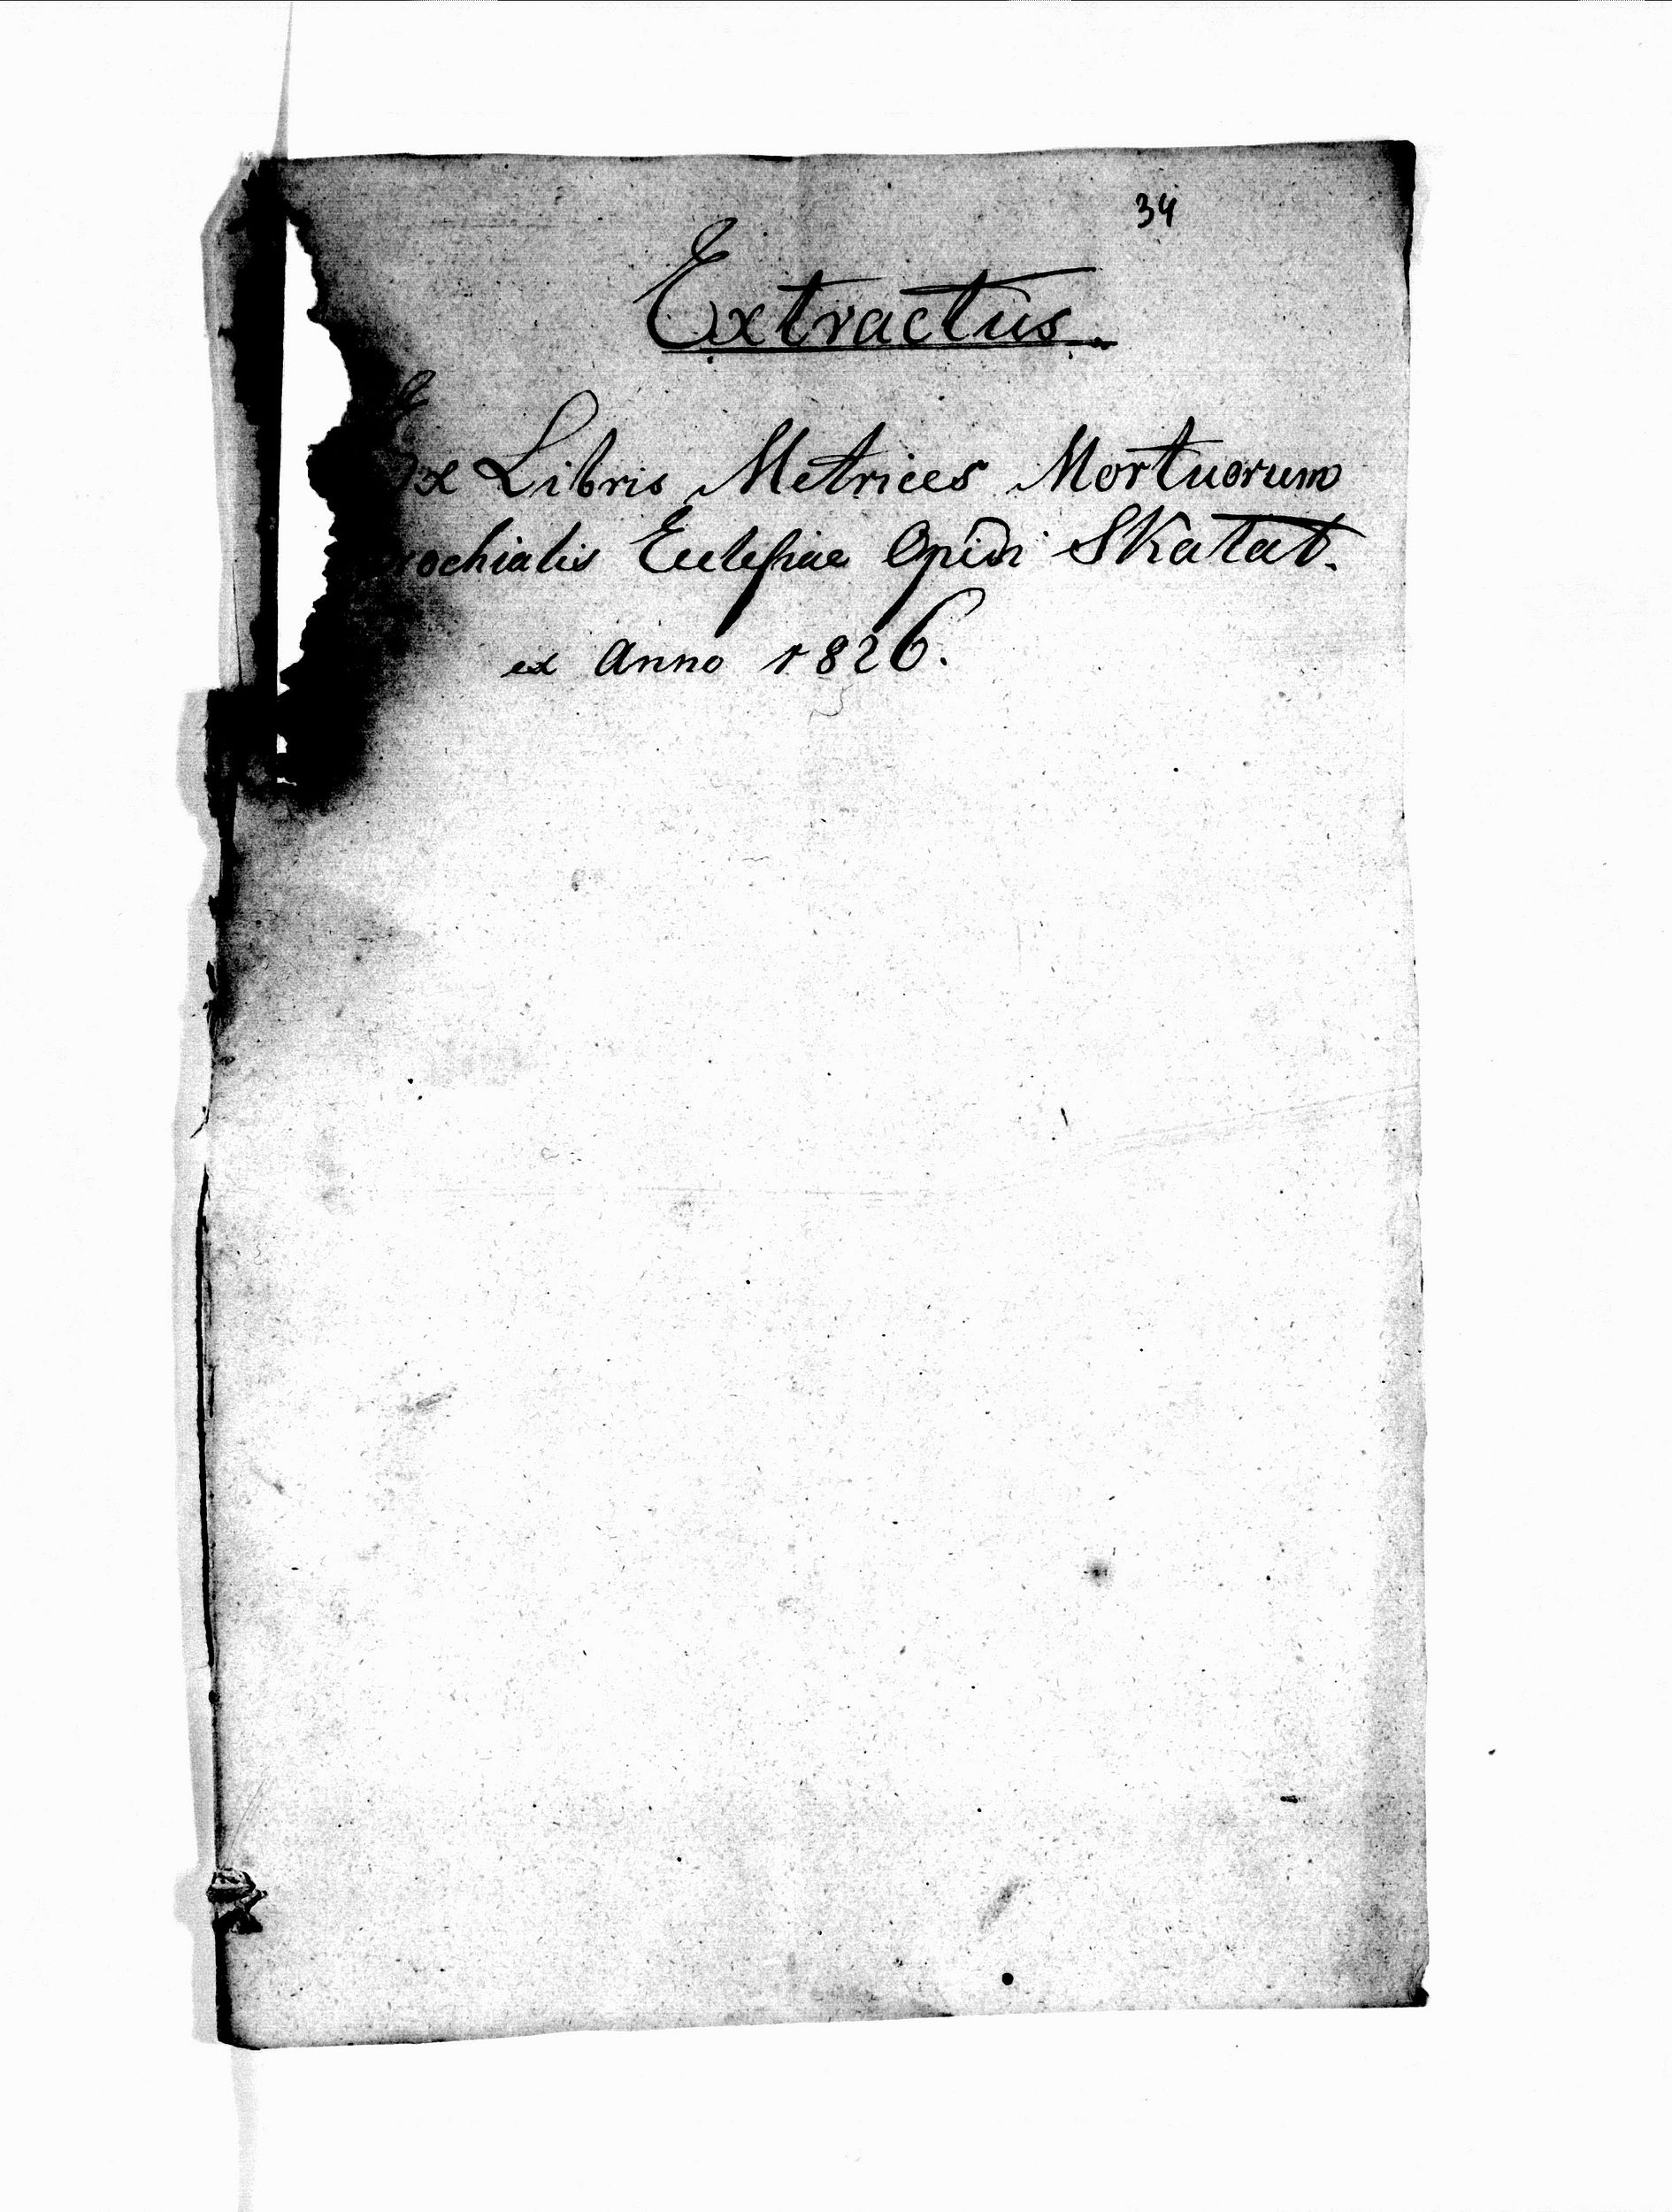 34
Extractus.
Ex Libris Metrices Mortuorum
rochialis Ecclesiae Opidi Skatat.
ex Anno 1826.